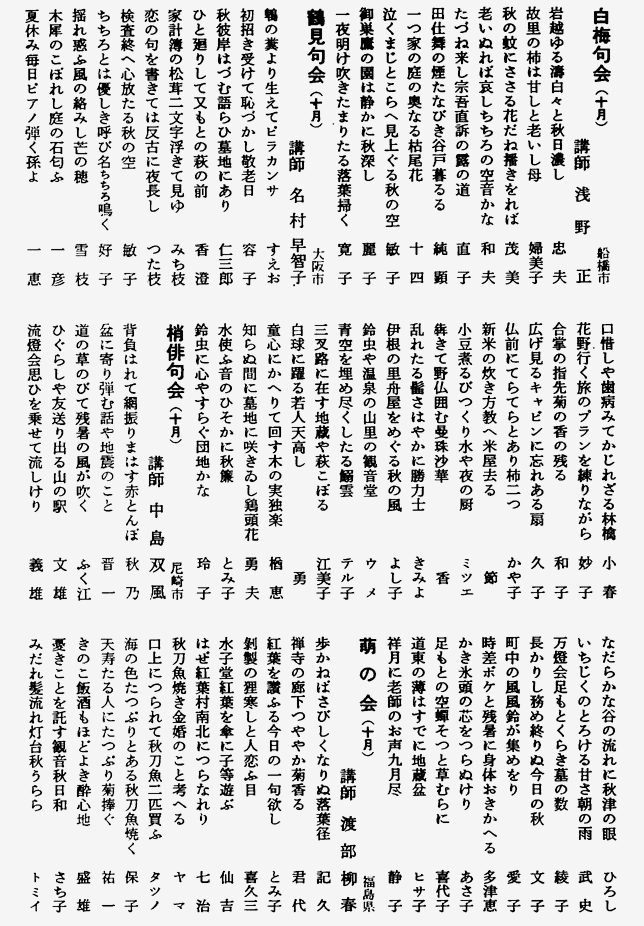 白梅句会（十月）
船橋市
講師 浅野 正
岩越ゆる濤白々と秋日濃し 忠夫
故里の柿は甘しと老いし母 婦美子
秋の蚊にささる花だね播きをれば 茂美
老いぬれば哀しちちろの空音かな 和夫
たづね来し宗吾直訴の露の道 直子
田仕舞の煙たなびき谷戸暮るる 純顕
一つ家の庭の奥なる枯尾花 十四
泣くまじとこらへ見上ぐる秋の空 敏子
御巣鷹の園は静かに秋深し 麗子
一夜明け吹きたまりたる落葉掃く 寛子
鶴見句会（十月）
大阪市
講師 名村 早智子
鵯の糞より生えてピラカンサ すえお
初招き受けて恥づかし敬老日 容子
秋彼岸はづむ語らひ墓地にあり 仁三郎
ひと廻りして又もとの萩の前 香澄
家計簿の松茸二文字浮きて見ゆ みち枝
恋の句を書きては反古に夜長し つた枝
検査終へ心放たる秋の空 敏子
ちちろとは優しき呼び名ちちろ鳴く 好子
揺れ惑ふ風の絡みし芒の穂 雪枝
木犀のこぼれし庭の石匂ふ 一彦
夏休み毎日ピアノ弾く孫よ 一恵
口惜しや歯病みてかじれざる林檎 小春
花野行く旅のプランを練りながら 妙子
合掌の指先菊の香の残る 和子
広げ見るキャビンに忘れある扇 久子
仏前にてらてらとあり柿二つ かや子
新米の炊き方教へ米屋去る 節
小豆煮るびつくり水や夜の厨 ミツエ
犇きて野仏囲む曼珠沙華 香
乱れたる髷さはやかに勝力士 きみよ
伊根の里舟屋をめぐる秋の風 よし子
鈴虫や温泉の山里の観音堂 ウメ
青空を埋め尽くしたる鰯雲 テル子
三叉路に在す地蔵や萩こぼる 江美子
白球に躍る若人天高し 勇
童心にかへりて回す木の実独楽 楢恵
知らぬ間に墓地に咲きゐし鶏頭花 勇夫
水使ふ音のひそかに秋簾 とみ子
鈴虫に心やすらぐ団地かな 玲子
梢俳句会（十月）
尼崎市
講師 中島 双風
背負はれて網振りまはす赤とんぼ 秋乃
盆に寄り弾む話や地震のこと 晋一
道の草のびて残暑の風が吹く ふく江
ひぐらしや友送り出る山の駅 文雄
流燈会思ひを乗せて流しけり 義雄
なだらかな谷の流れに秋津の眼 ひろし
いちじくのとろける甘さ朝の雨 武史
万燈会足もとくらき墓の数 綾子
長かりし務め終りぬ今日の秋 文子
町中の風風鈴が集めをり 愛子
時差ボケと残暑に身体おきかへる 多津恵
かき氷頭の芯をつらぬけり あさ子
足もとの空蟬そつと草むらに 喜代子
道東の薄はすでに地蔵盆 ヒサ子
祥月に老師のお声九月尽 静子
萌の会（十月）
福島県
講師 渡部 柳春
歩かねばさびしくなりぬ落葉径 記久
禅寺の廊下つややか菊香る 君代
紅葉を讃ふる今日の一句欲し とみ子
剝製の狸寒しと人恋ふ目 喜久三
水子堂紅葉を傘に子等遊ぶ 仙吉
はぜ紅葉村南北につらなれり 七治
秋刀魚焼き金婚のこと考へる ヤマ
口上につられて秋刀魚二匹買ふ タツノ
海の色たつぷりとある秋刀魚焼く 保子
天寿たる人にたつぷり菊捧ぐ 祐一
きのこ飯酒もほどよき酔心地 盛雄
憂きことを託す観音秋日和 さち子
みだれ髪流れ灯台秋うらら トミイ